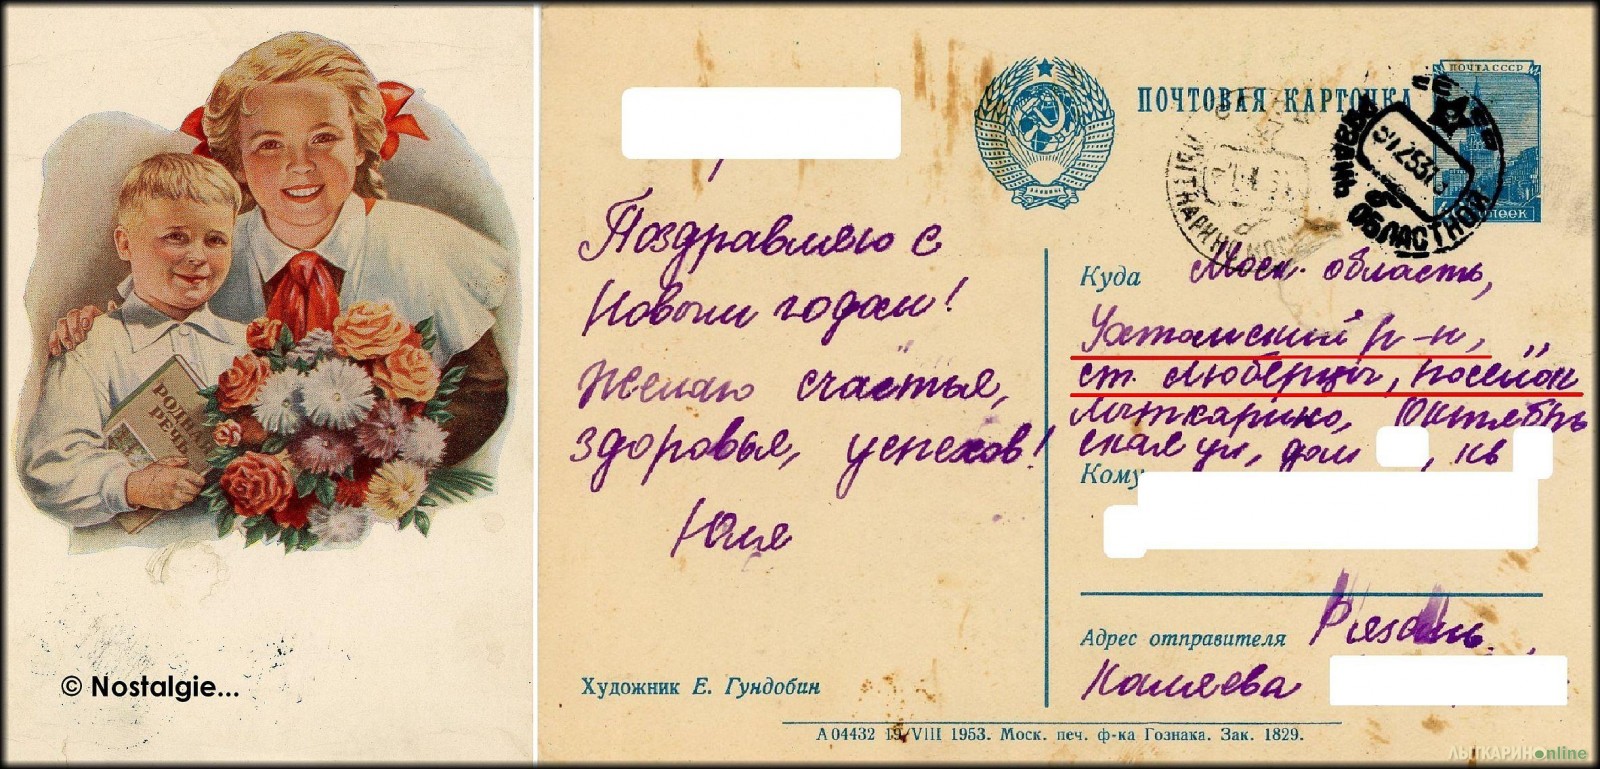 РОДНАЯ
РЕЧЬ
© Nostalgie...
Поздравляю с
Новым годом!
Желаю счастья,
здоровья, успехов!
Юля
Художник Е. Гундобин
ПОЧТОВАЯ КАРТОЧКА
ПОЧТА СССР
РЯЗАНЬ
ОБЛАСТНОЙ
Куда Моск. область,
Ухтомский р-н,
ст. Люберцы, поселок
Лыткарино, Октябрь
ская ул, дом , кв
Кому
Адрес отправителя Рязань
Каляева
А 04432 19/VIII 1953. Моск. печ. ф-ка Гознака. Зак. 1829.
ЛЫТКАРИНОonline